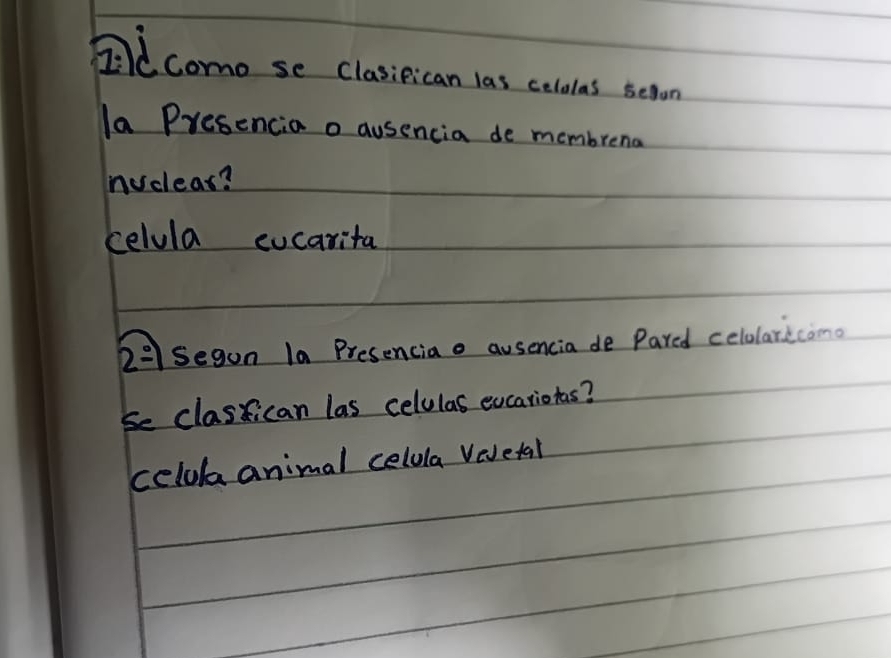 1:) ¿como se clasifican las celulas segun
la Presencia o ausencia de membrena
nuclear?
celula eucarita
2º) segun la Presencia o ausencia de Pared celular ¿cómo
se clasfican las celulas eucariotas?
celula animal celula Vejetal